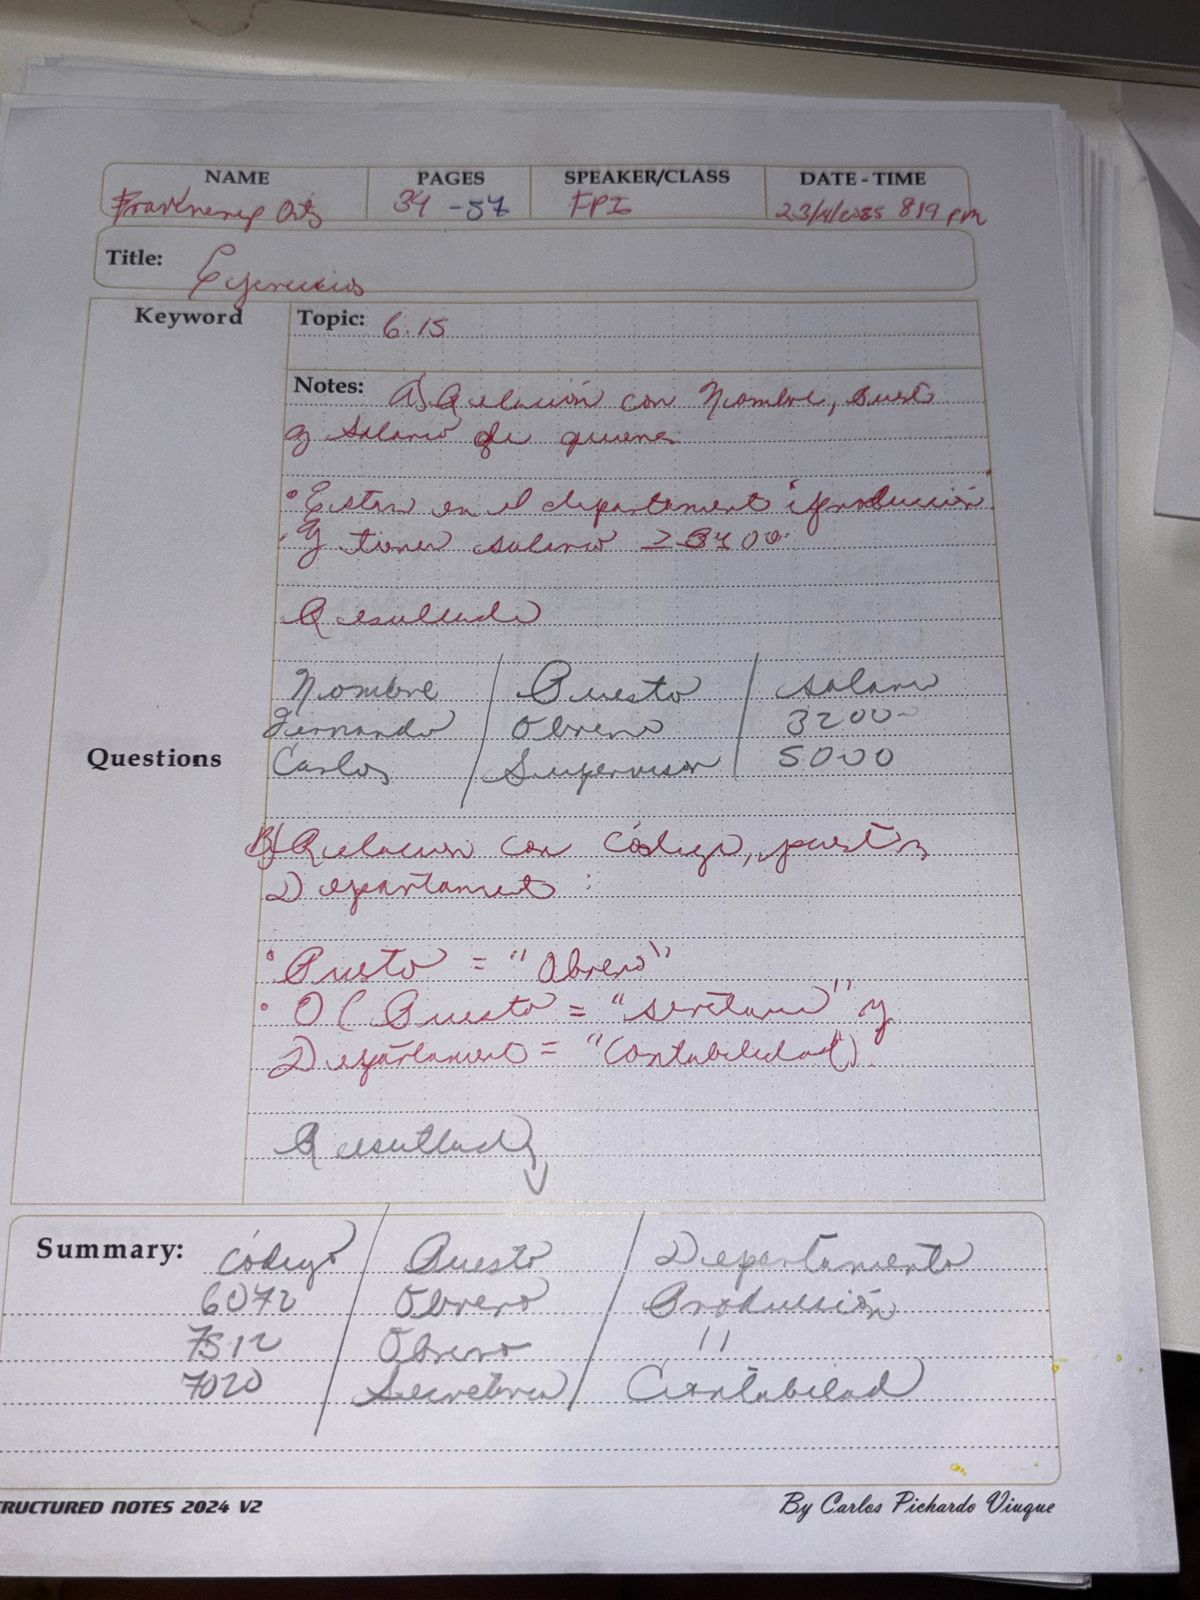 NAME PAGES SPEAKER/CLASS DATE - TIME
34 - 57 FPI 23/4/2025 819 pm
Title: Ejercicios
Keyword Topic: 6.15
Notes: A) Relación con Nombre, Puesto
y Salario de quienes
• Estan en el departamento "producción"
• y tienen salario ≥
Resultado
Nombre / Puesto / Salario
Fernando / Obrero / 3200
Questions Carlos / Supervisor / 5000
B) Relacion con Código, puesto y
Departamento :
• Puesto = "Obrero"
• O ( Puesto = "secretaria" y
Departamento = "Contabilidad")
Resultado
Summary: Código / Puesto / Departamento
6072 / Obrero / Producción
7512 / Obrero / "
7020 / Secretaria / Contabilidad
TRUCTURED NOTES 2024 V2 By Carlos Pichardo Viuque